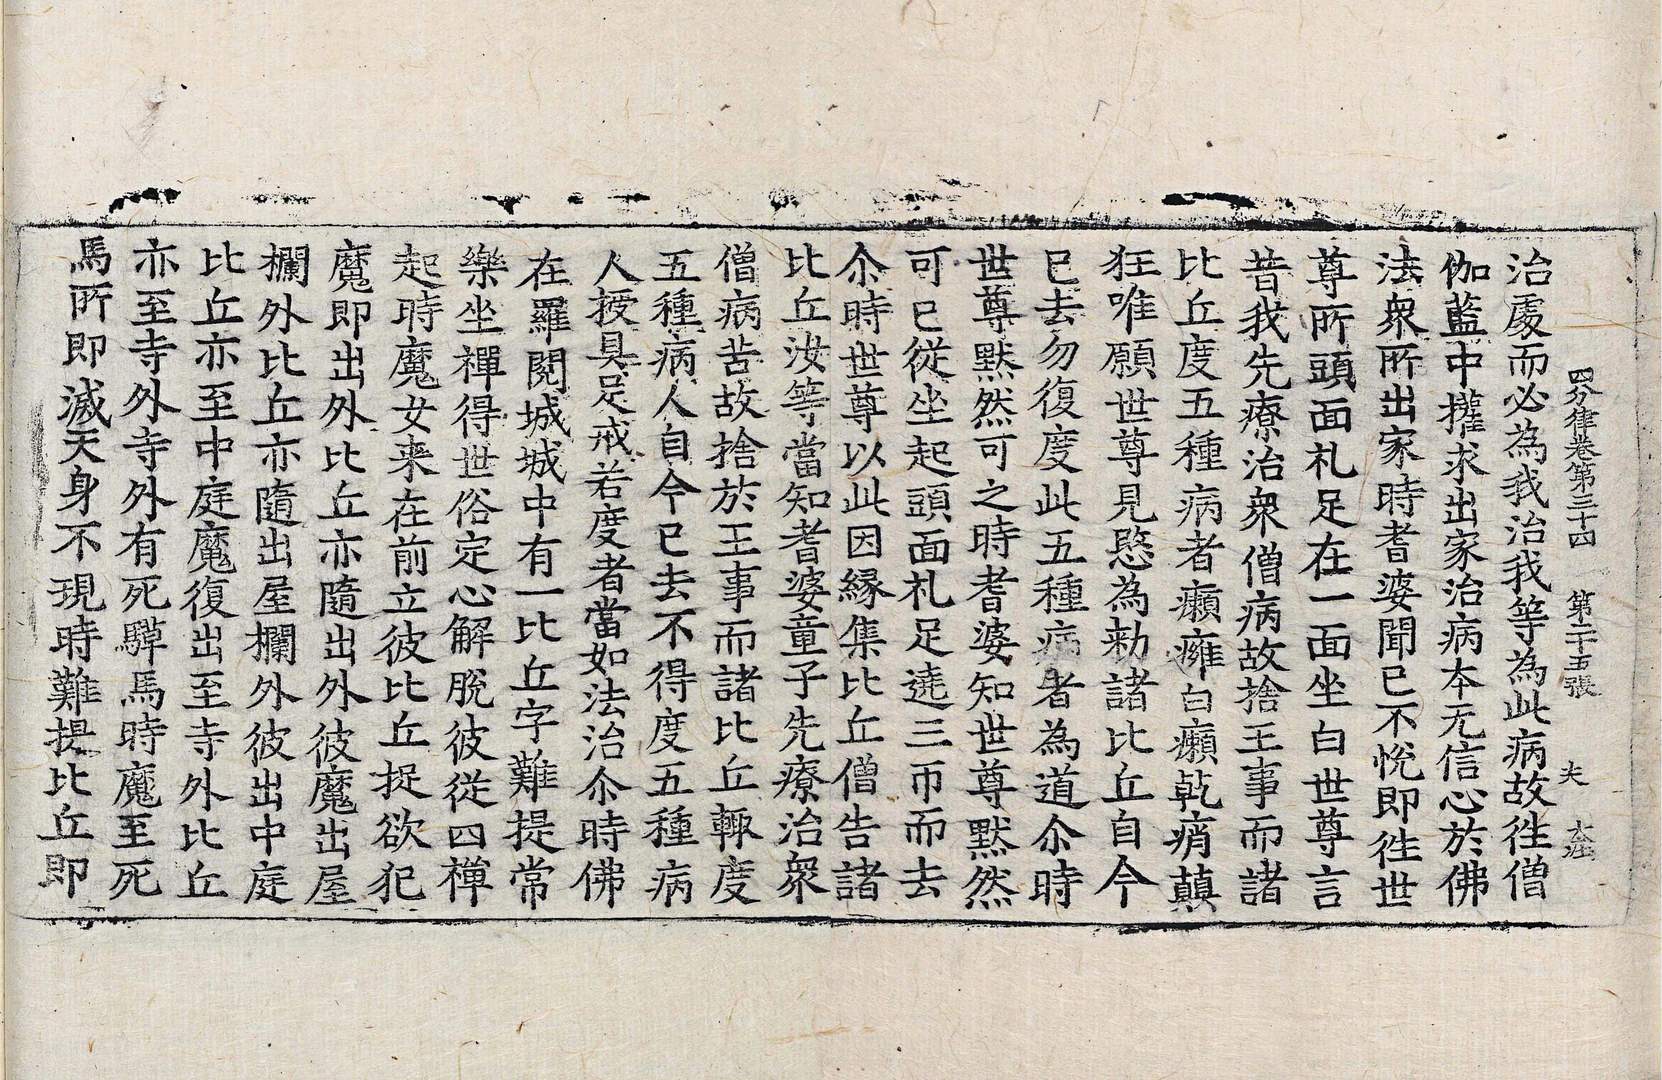 四分律卷第三十四　第二十五張　夫
治處而必為我治我等為此病故往僧
伽藍中權求出家治病本无信心於佛
法衆所出家時耆婆聞已不恱即往世
尊所頭面礼足在一面坐白世尊言
昔我先療治衆僧病故捨王事而諸
比丘度五種病者癩癰白癩乹痟顛
狂唯願世尊見愍為勑諸比丘自今
已去勿復度此五種病者為道尒時
世尊黙然可之時耆婆知世尊黙然
可已從坐起頭面礼足遶三帀而去
尒時世尊以此因縁集比丘僧告諸
比丘汝等當知耆婆童子先療治衆
僧病苦故捨於王事而諸比丘輙度
五種病人自今已去不得度五種病
人授具足戒若度者當如法治尒時佛
在羅閱城城中有一比丘字難提常
樂坐禪得世俗定心解脫彼從四禪
起時魔女来在前立彼比丘捉欲犯
魔即出外比丘亦隨出外彼魔出屋
欄外比丘亦隨出屋欄外彼出中庭
比丘亦至中庭魔復出至寺外比丘
亦至寺外寺外有死騲馬時魔至死
馬所即滅天身不現時難提比丘即